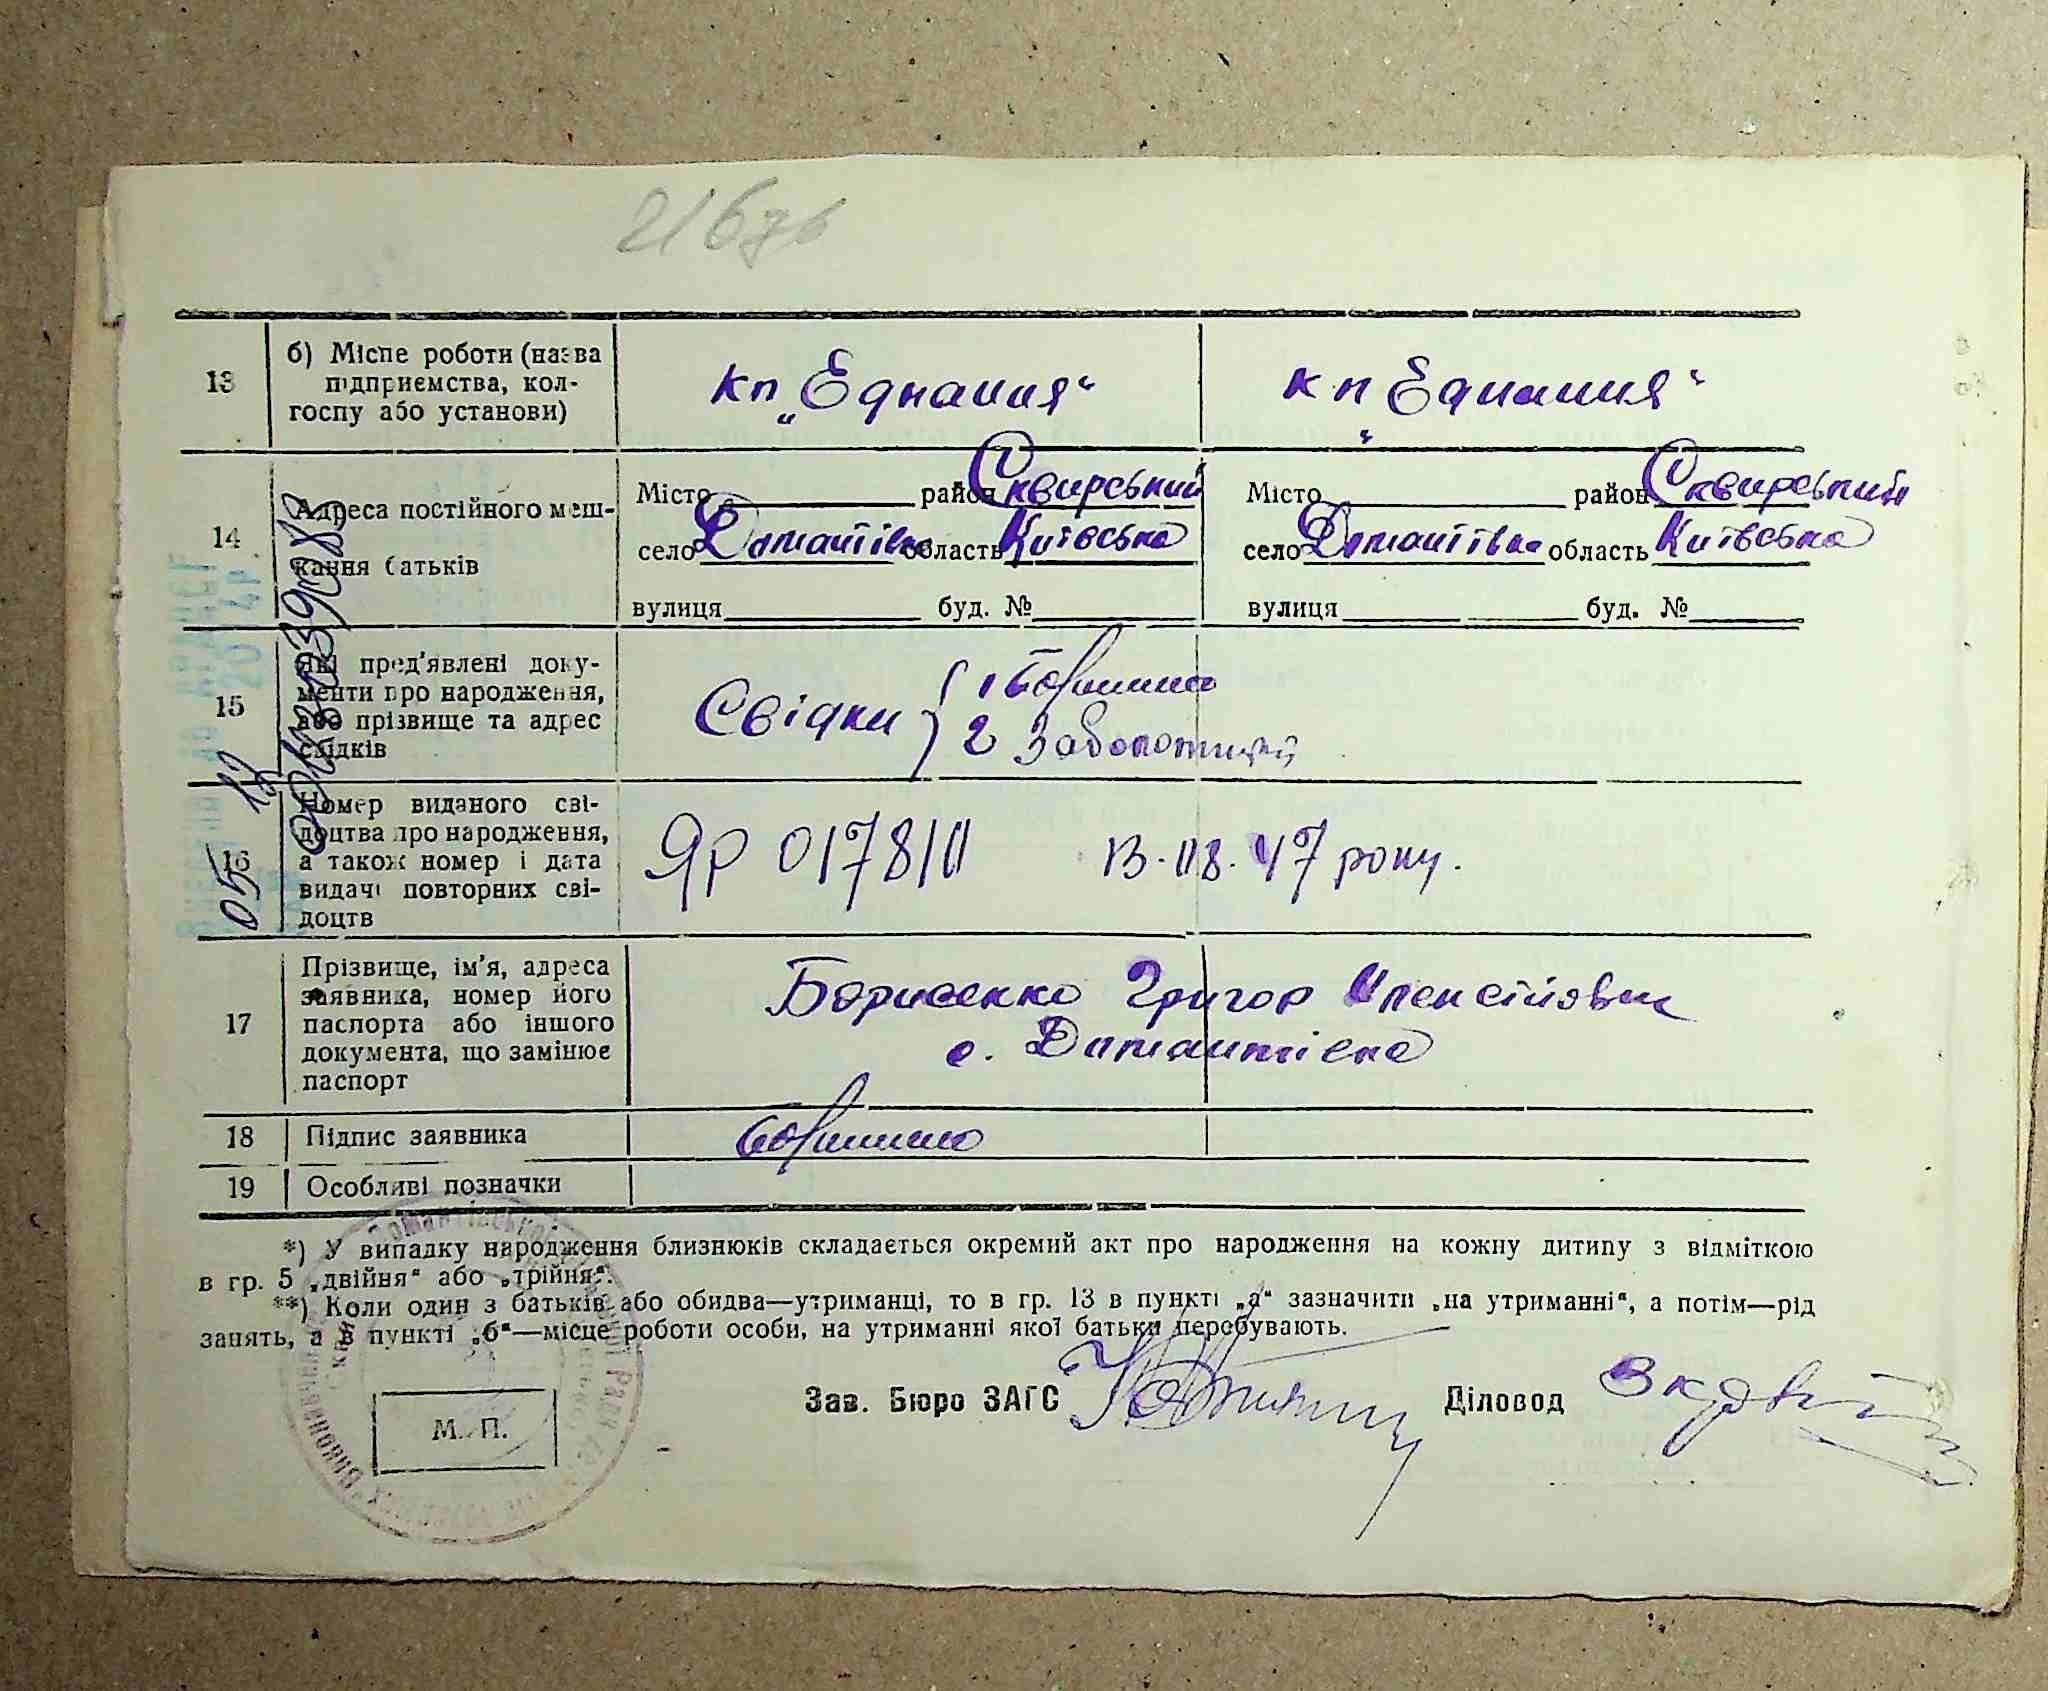 13
б) Місце роботи (назва
підприємства, кол-
госпу або установи)
кп „Еднання“
кп „Еднання“
14
Адреса постійного меш-
кання батьків
Місто район Сквирський
село Домантівка область Київська
вулиця буд. №
Місто район Сквирський
село Домантівка область Київська
вулиця буд. №
15
Які пред'явлені доку-
менти про народження,
або прізвище та адрес
свідків
Свідки
1
2 Заболотний
16
Номер виданого сві-
доцтва про народження,
а також номер і дата
видачі повторних сві-
доцтв
ЯР 017810 13.08.47 року.
17
Прізвище, ім'я, адреса
заявника, номер його
паспорта або іншого
документа, що замінює
паспорт
Борисенко Григор
с. Домантівка
18
Підпис заявника
19
Особливі позначки
*) У випадку народження близнюків складається окремий акт про народження на кожну дитину з відміткою
в гр. 5 „двійня“ або „трійня“.
**) Коли один з батьків або обидва—утриманці, то в гр. 13 в пункті „а“ зазначити „на утриманні“, а потім—рід
занять, а в пункті „б“—місце роботи особи, на утриманні якої батьки перебувають.
Зав. Бюро ЗАГС
Діловод
М. П.